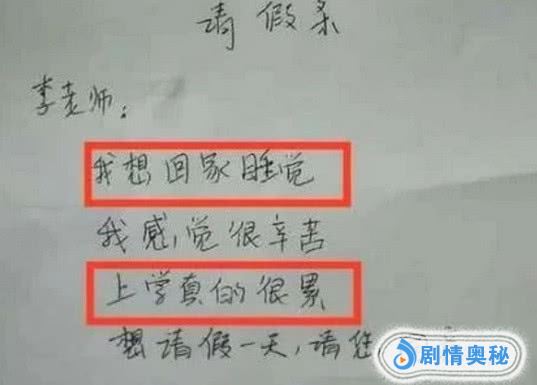 请假条
李老师:
我想回家睡觉
我感觉很辛苦
上学真的很累
想请假一天,请您
剧情奥秘